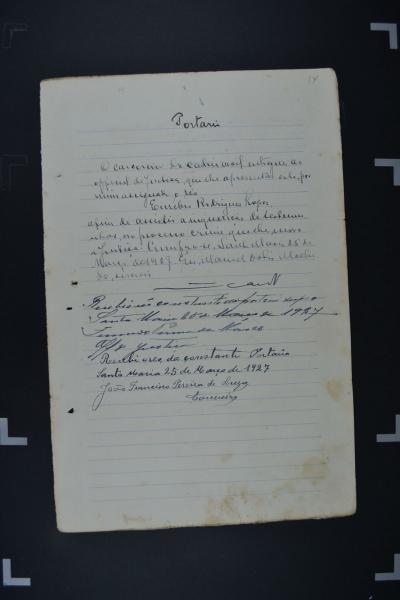 14
Portaria
O carcereiro da cadeia civil entregue ao
official de Justiça, que lhe apresentar este, por
mim assignado o réo
Eusebio Rodrigues Lopes
afim de assistir a inquirição de testemu
nhas, no processo crime que lhe move
a Justiça. Cumpra-se. Santa Maria 25 de
Março de 1927. Eu, Manoel
escrivão
Recebi o réo constante da
Santa Maria 25 de Março de 1927
Of. de Justiça
Recebi o reo da constante Portaria
Santa Maria 25 de Março de 1927
João Francisco Pereira de Souza
Carcereiro